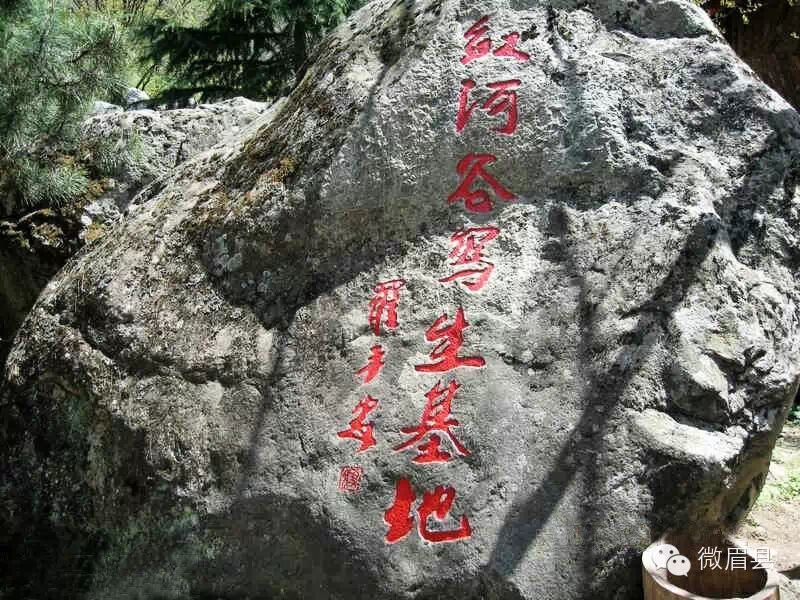 红河谷写生基地
罗平安
微眉县